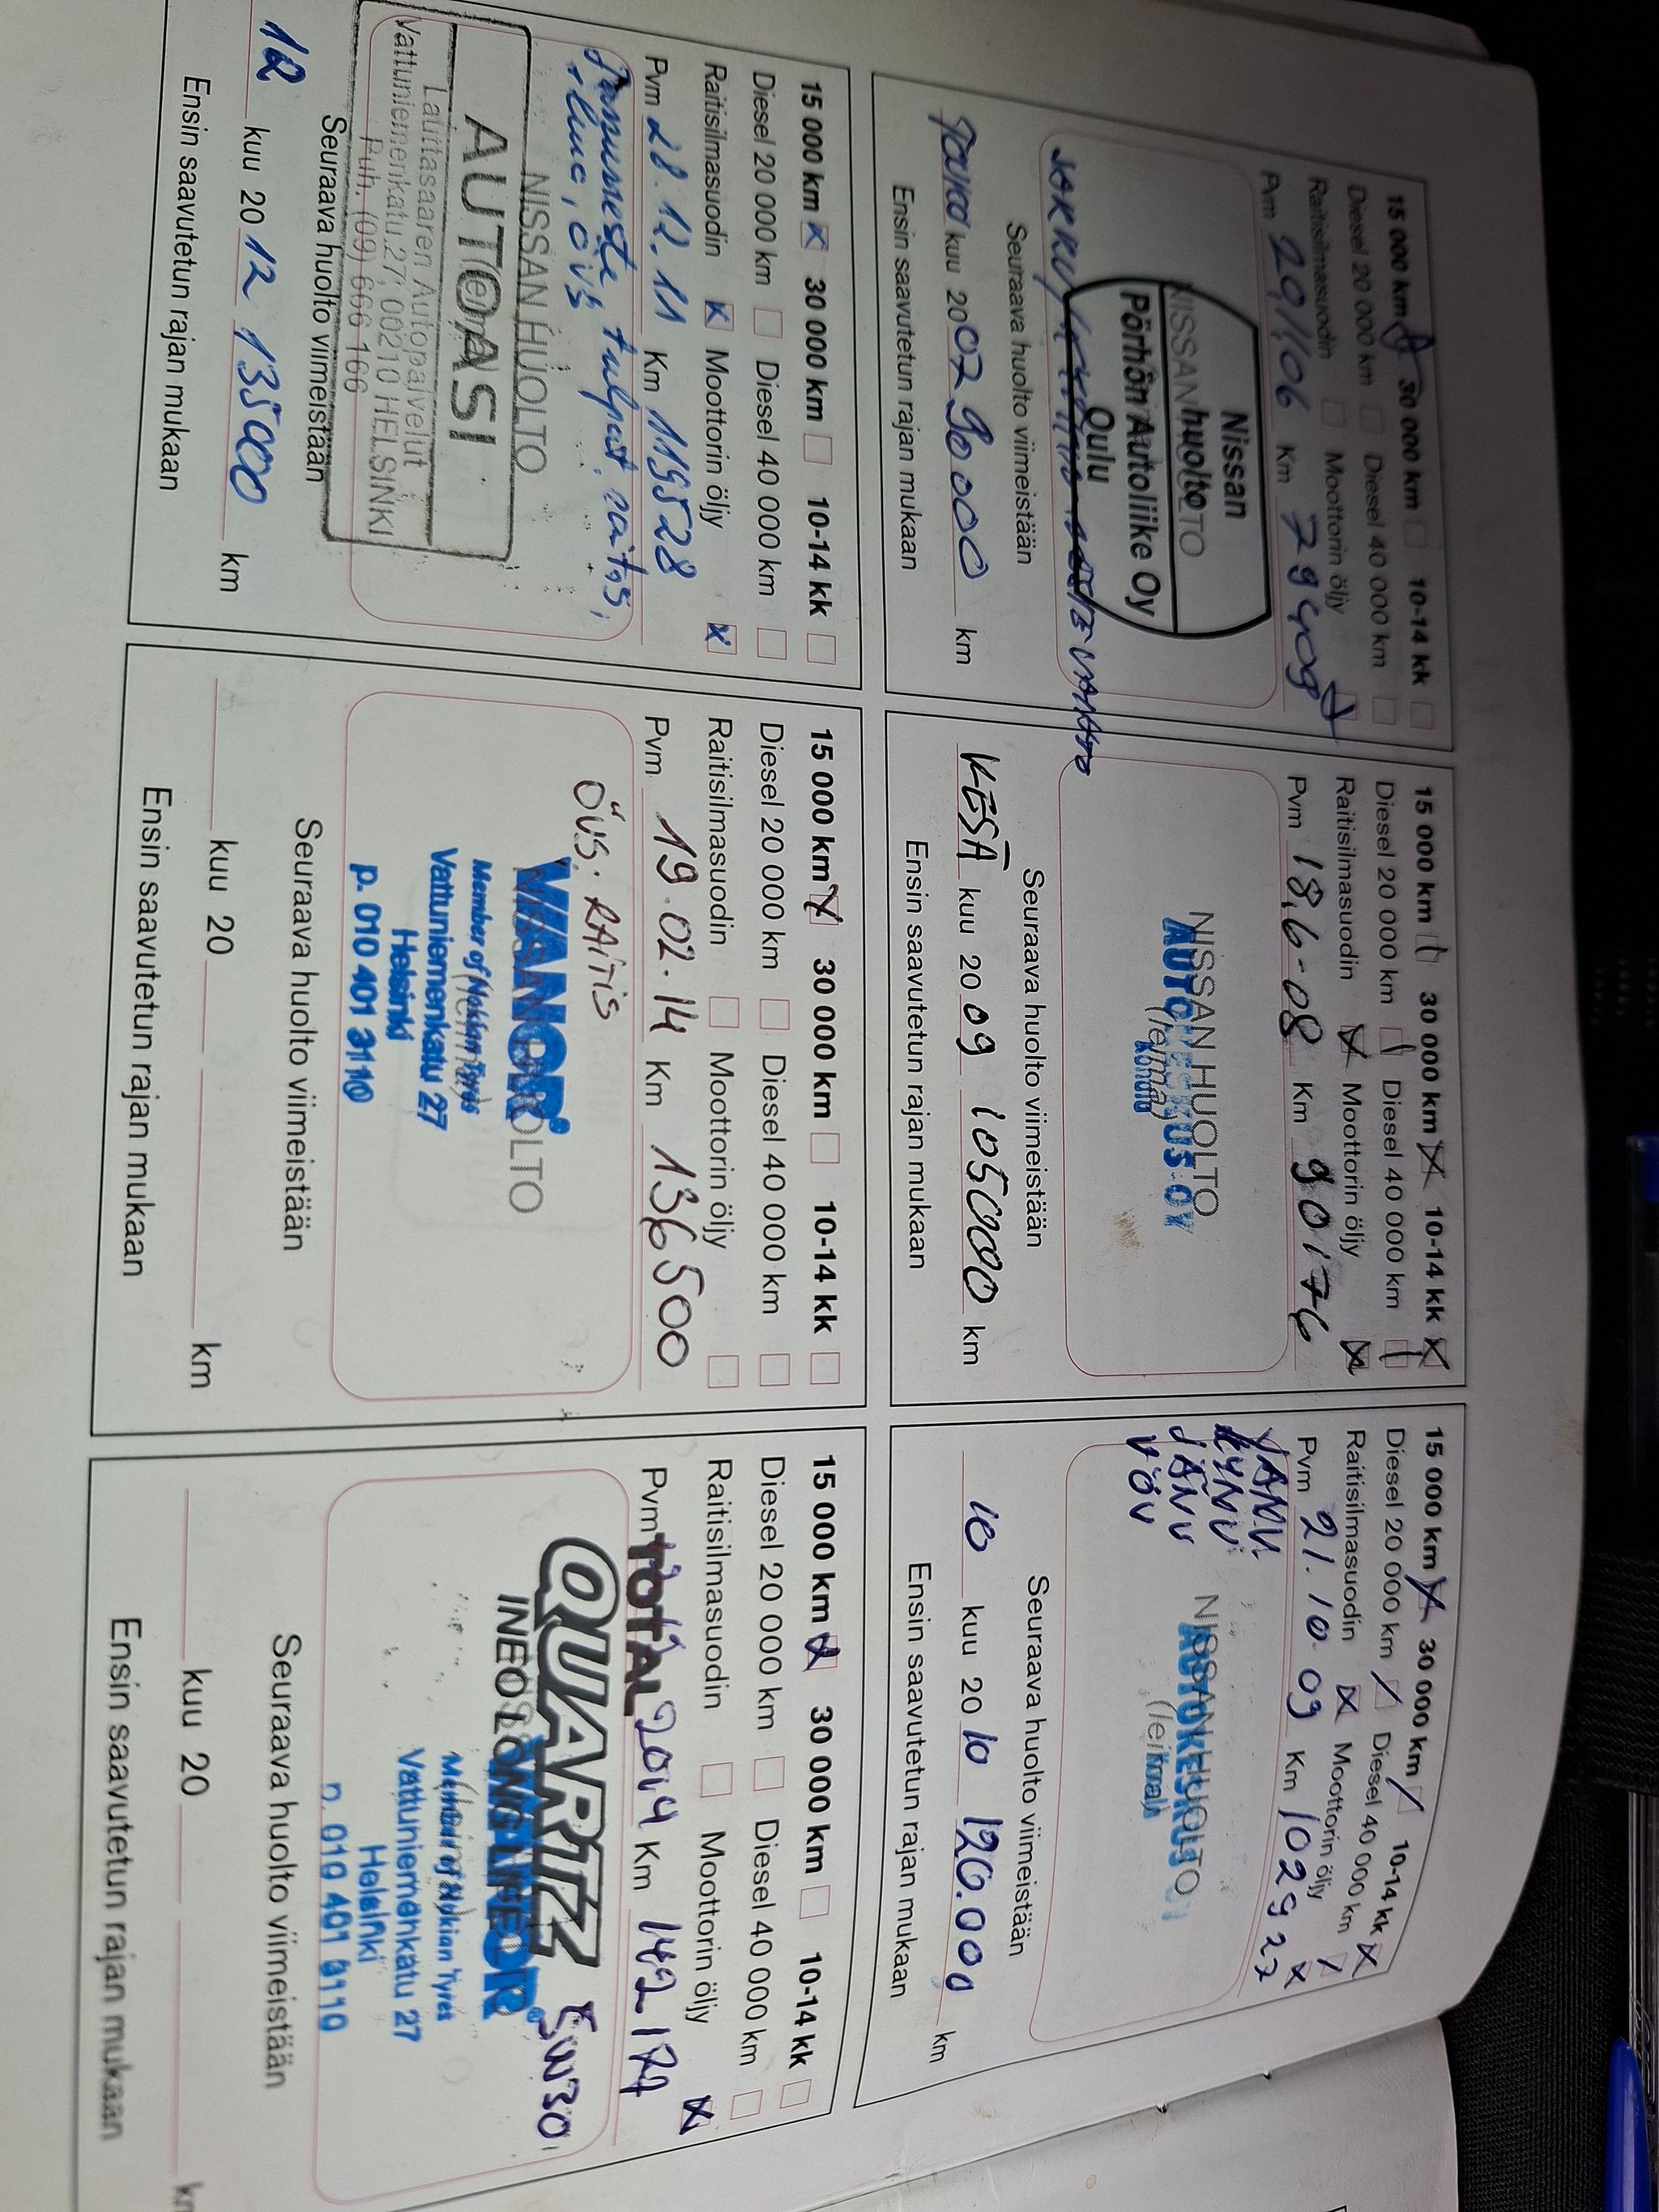 15 000 km 30 000 km 10-14 kk
Diesel 20 000 km Diesel 40 000 km
Raitisilmasuodin Moottorin öljy
Pvm Km 79409
Nissan
NISSAN huolto
Pörhön Autoliike Oy
Oulu
Seuraava huolto viimeistään
kuu 2007 90000 km
Ensin saavutetun rajan mukaan
15 000 km 30 000 km 10-14 kk
Diesel 20 000 km Diesel 40 000 km
Raitisilmasuodin Moottorin öljy
Pvm 18.6-08 Km 90176
NISSAN HUOLTO
AUTOKESKUS OY
(leima)
Konala
Seuraava huolto viimeistään
KESÄ kuu 2009 105000 km
Ensin saavutetun rajan mukaan
15 000 km 30 000 km 10-14 kk
Diesel 20 000 km Diesel 40 000 km
Raitisilmasuodin Moottorin öljy
Pvm 21.10.09 Km 102927
JÄNV
NISSAN HUOLTO
AUTOKESKUS
(leima)
Seuraava huolto viimeistään
10 kuu 2010 120.000 km
Ensin saavutetun rajan mukaan
15 000 km 30 000 km 10-14 kk
Diesel 20 000 km Diesel 40 000 km
Raitisilmasuodin Moottorin öljy
Pvm 28.12.11 Km 119528
tulpat, raitis,
NISSAN HUOLTO
AUTOASI
Lauttasaaren Autopalvelut
Vattuniemenkatu 27, 00210 HELSINKI
Puh. (09) 666 166
Seuraava huolto viimeistään
12 kuu 2012 135000 km
Ensin saavutetun rajan mukaan
15 000 km 30 000 km 10-14 kk
Diesel 20 000 km Diesel 40 000 km
Raitisilmasuodin Moottorin öljy
Pvm 19.02.14 Km 136500
ÖVS. RAITIS
NISSAN HUOLTO
VIANOR
Member of Nokian Tyres
Vattuniemenkatu 27
Helsinki
p. 010 401 3110
Seuraava huolto viimeistään
kuu 20 km
Ensin saavutetun rajan mukaan
15 000 km 30 000 km 10-14 kk
Diesel 20 000 km Diesel 40 000 km
Raitisilmasuodin Moottorin öljy
Pvm 2014 Km 142177
TOTAL
QUARTZ 5W30
INEO LONG LIFE
VIANOR
Member of Nokian Tyres
Vattuniemenkatu 27
Helsinki
p. 010 401 3110
Seuraava huolto viimeistään
kuu 20 km
Ensin saavutetun rajan mukaan